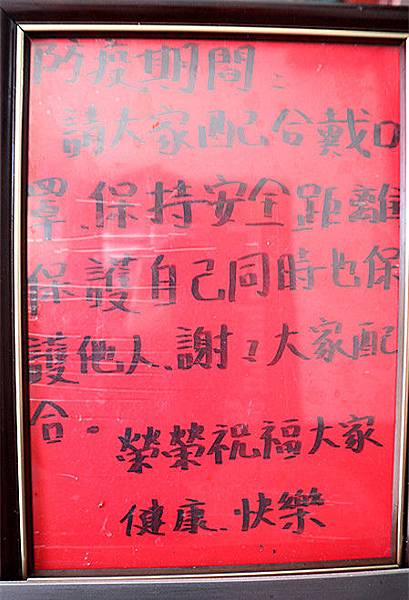 防疫期間：
請大家配合戴口
罩、保持安全距離
保護自己同時也保
護他人、謝謝大家配
合。
榮榮祝福大家
健康、快樂